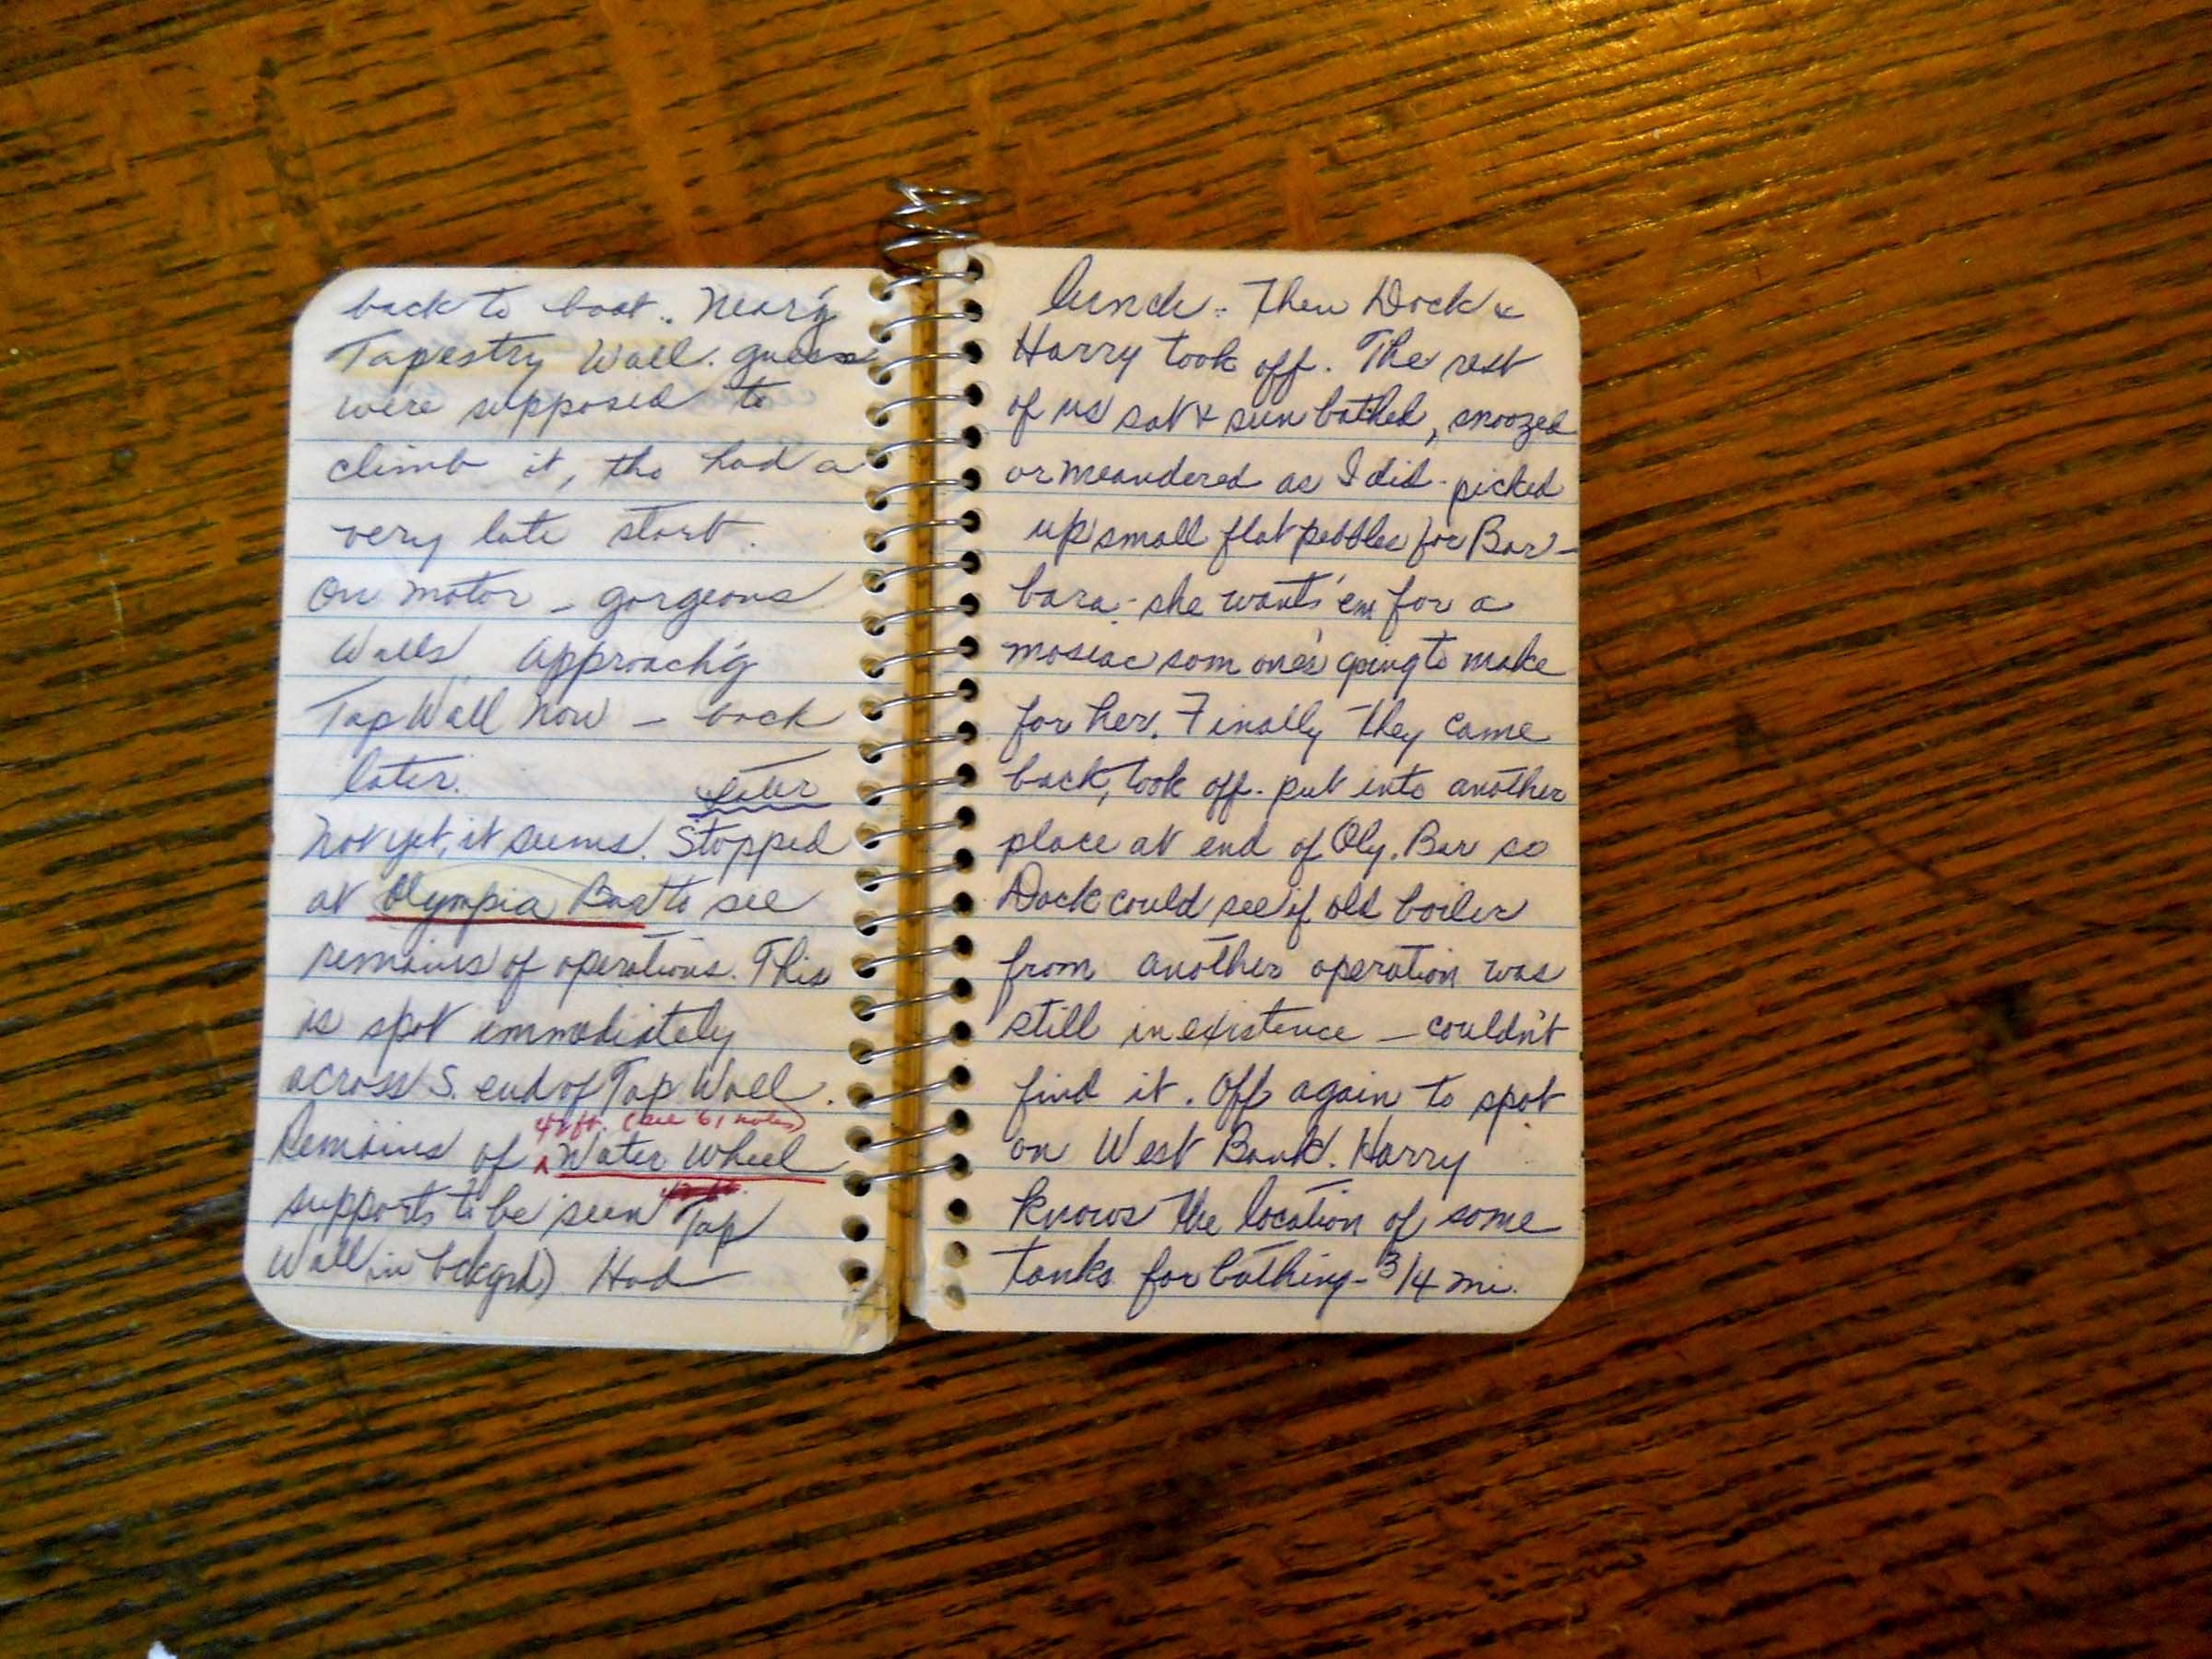 back to boat. Near'g
Tapestry Wall. guess
were supposed to
climb it, tho had a
very late start.
On motor – gorgeous
Walls. Approach'g
Tap Wall now – back
later.
later
Not yet, it seems. Stopped
at Olympia Bar to see
remains of operations. This
is spot immediately
across S. end of Tap Wall.
42 ft. (see 61 notes)
Remains of ^ Water Wheel
supports to be seen Tap
Wall in bckgrd) Had
lunch. Then Dock &
Harry took off. The rest
of us sat & sun bathed, snoozed
or meandered as I did - picked
up small flat pebbles for Bar-
bara - she wants 'em for a
mosiac som one's going to make
for her. Finally they came
back, took off - put into another
place at end of Oly. Bar so
Dock could see if old boiler
from another operation was
still in existence – couldn't
find it. Off again to spot
on West Bank. Harry
knows the location of some
tanks for bathing - 3/4 mi.